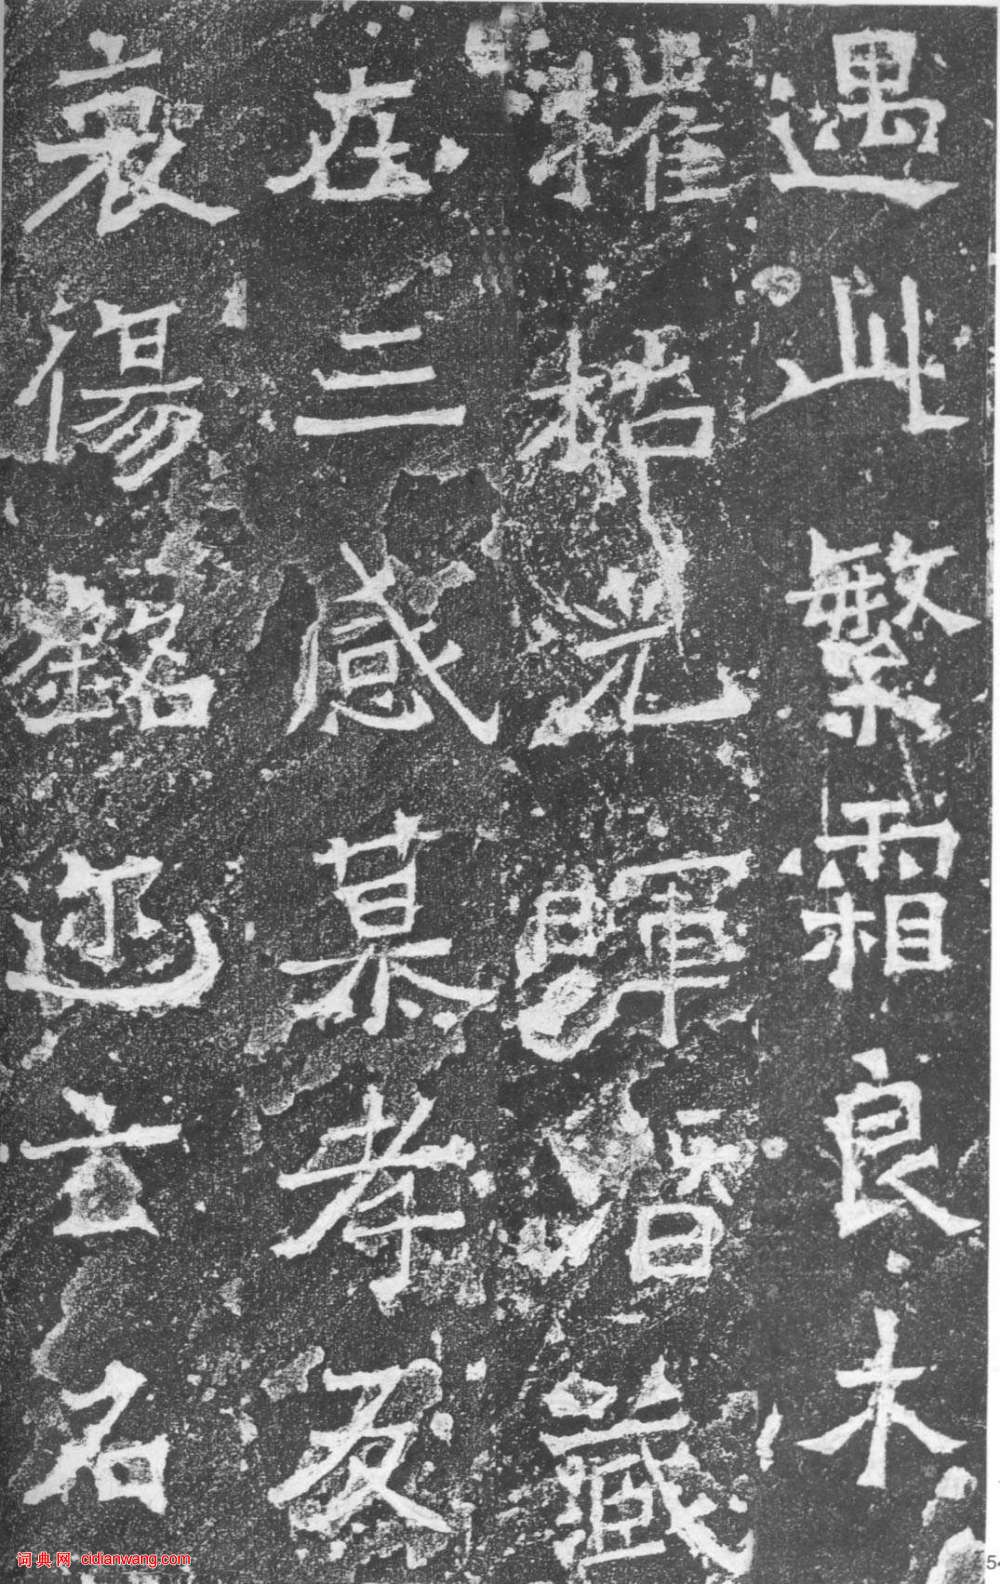 遇此繁霜良木
摧枯光暉潛藏
在三感慕孝友
哀傷銘迹玄石
词典网 cidianwang.com
54